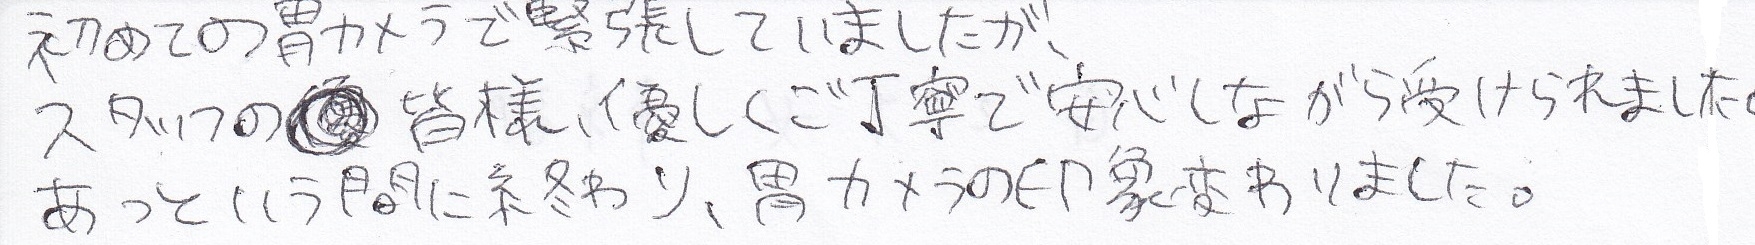 初めての胃カメラで緊張していましたが、
スタッフの皆様、優しくご丁寧で安心しながら受けられました。
あっという間に終わり、胃カメラの印象変わりました。